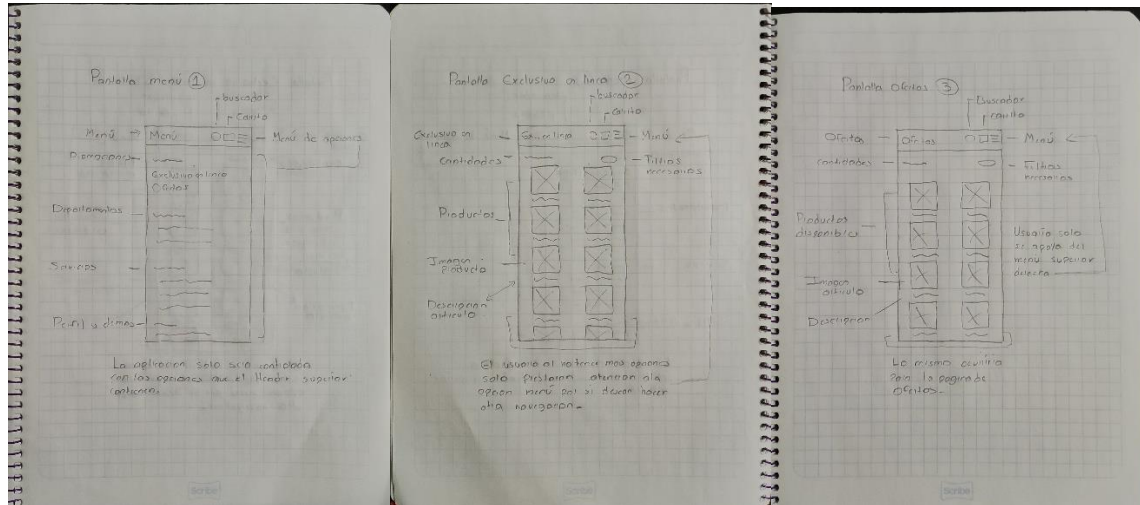 Pantalla menú 1
buscador
Carrito
Menú
Menú
Menú de opciones
Promociones
Exclusivo en linea
Ofertas
Departamentos
Servicios
La aplicacion solo sera controlada
con las opciones que el Header superior
contiene.
Scribe
Pantalla Exclusivo en linea 2
buscador
Carrito
Exclusivo en
linea
Menú
Cantidades
Filtros
necesarios
Productos
Imagen
producto
Descripcion
articulo
El usuario al no tener mas opciones
solo prestaran atencion a la
opcion menú por si desean hacer
otra navegacion
Scribe
Pantalla Ofertas 3
Buscador
carrito
Ofertas
Ofertas
Menú
Cantidades
Filtros
necesarios
Productos
disponibles
Usuario solo
se apoya del
menú superior
derecho
Imagen
articulo
Descripcion
Lo mismo ocurriria
para la pagina de
Ofertas
Scribe